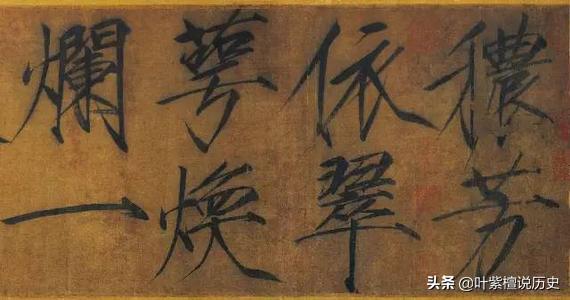 穠芳
依翠
萼煥
爛一
头条 @叶紫檀说历史